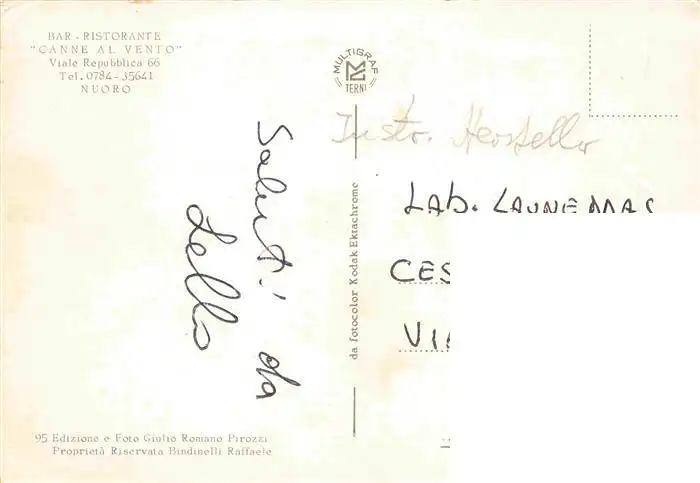 BAR - RISTORANTE
"CANNE AL VENTO"
Viale Repubblica 66
Tel. 0784-35641
NUORO
MULTIGRAF
TERNI
Saluti da
Lello
da fotocolor Kodak Ektachrome
LAB.
CES
VIA
95 Edizione e Foto Giulio Romano Pirozzi
Proprietà Riservata Bindinelli Raffaele